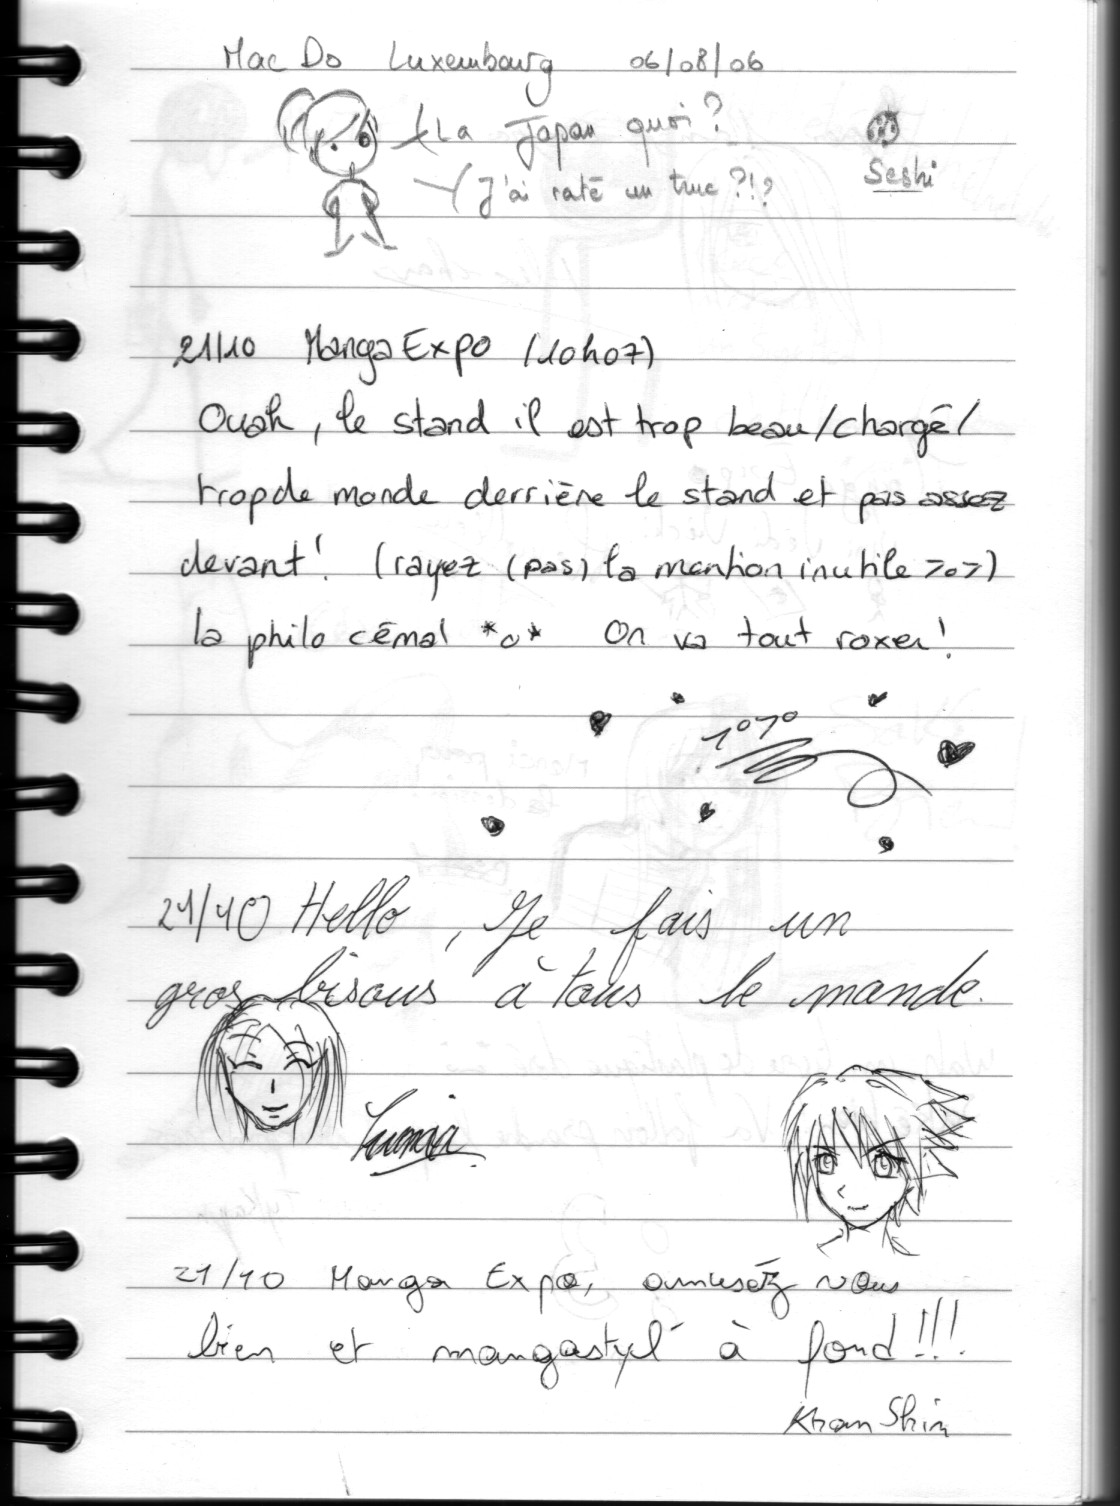 Mac Do Luxembourg 06/08/06
La Japan quoi?
J'ai raté un truc ?!?
Seshi
21/10 Manga Expo (10h07)
Ouah, le stand il est trop beau/chargé/
trop de monde derrière le stand et pas assez
devant! (rayez (pas) la mention inutile >o>)
la philo cémal *o* On va tout roxer!
21/10 Hello, Je fais un
gros bisous à tous le monde.
21/10 Manga Expo, amuséz vous
bien et mangastyl' à fond!!!
Khan Shin